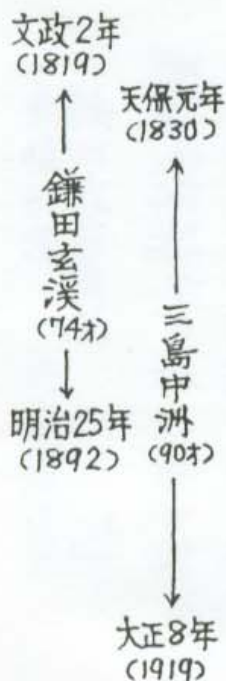 文政2年
(1819)
鎌田玄溪
(74才)
明治25年
(1892)
天保元年
(1830)
三島中洲
(90才)
大正8年
(1919)